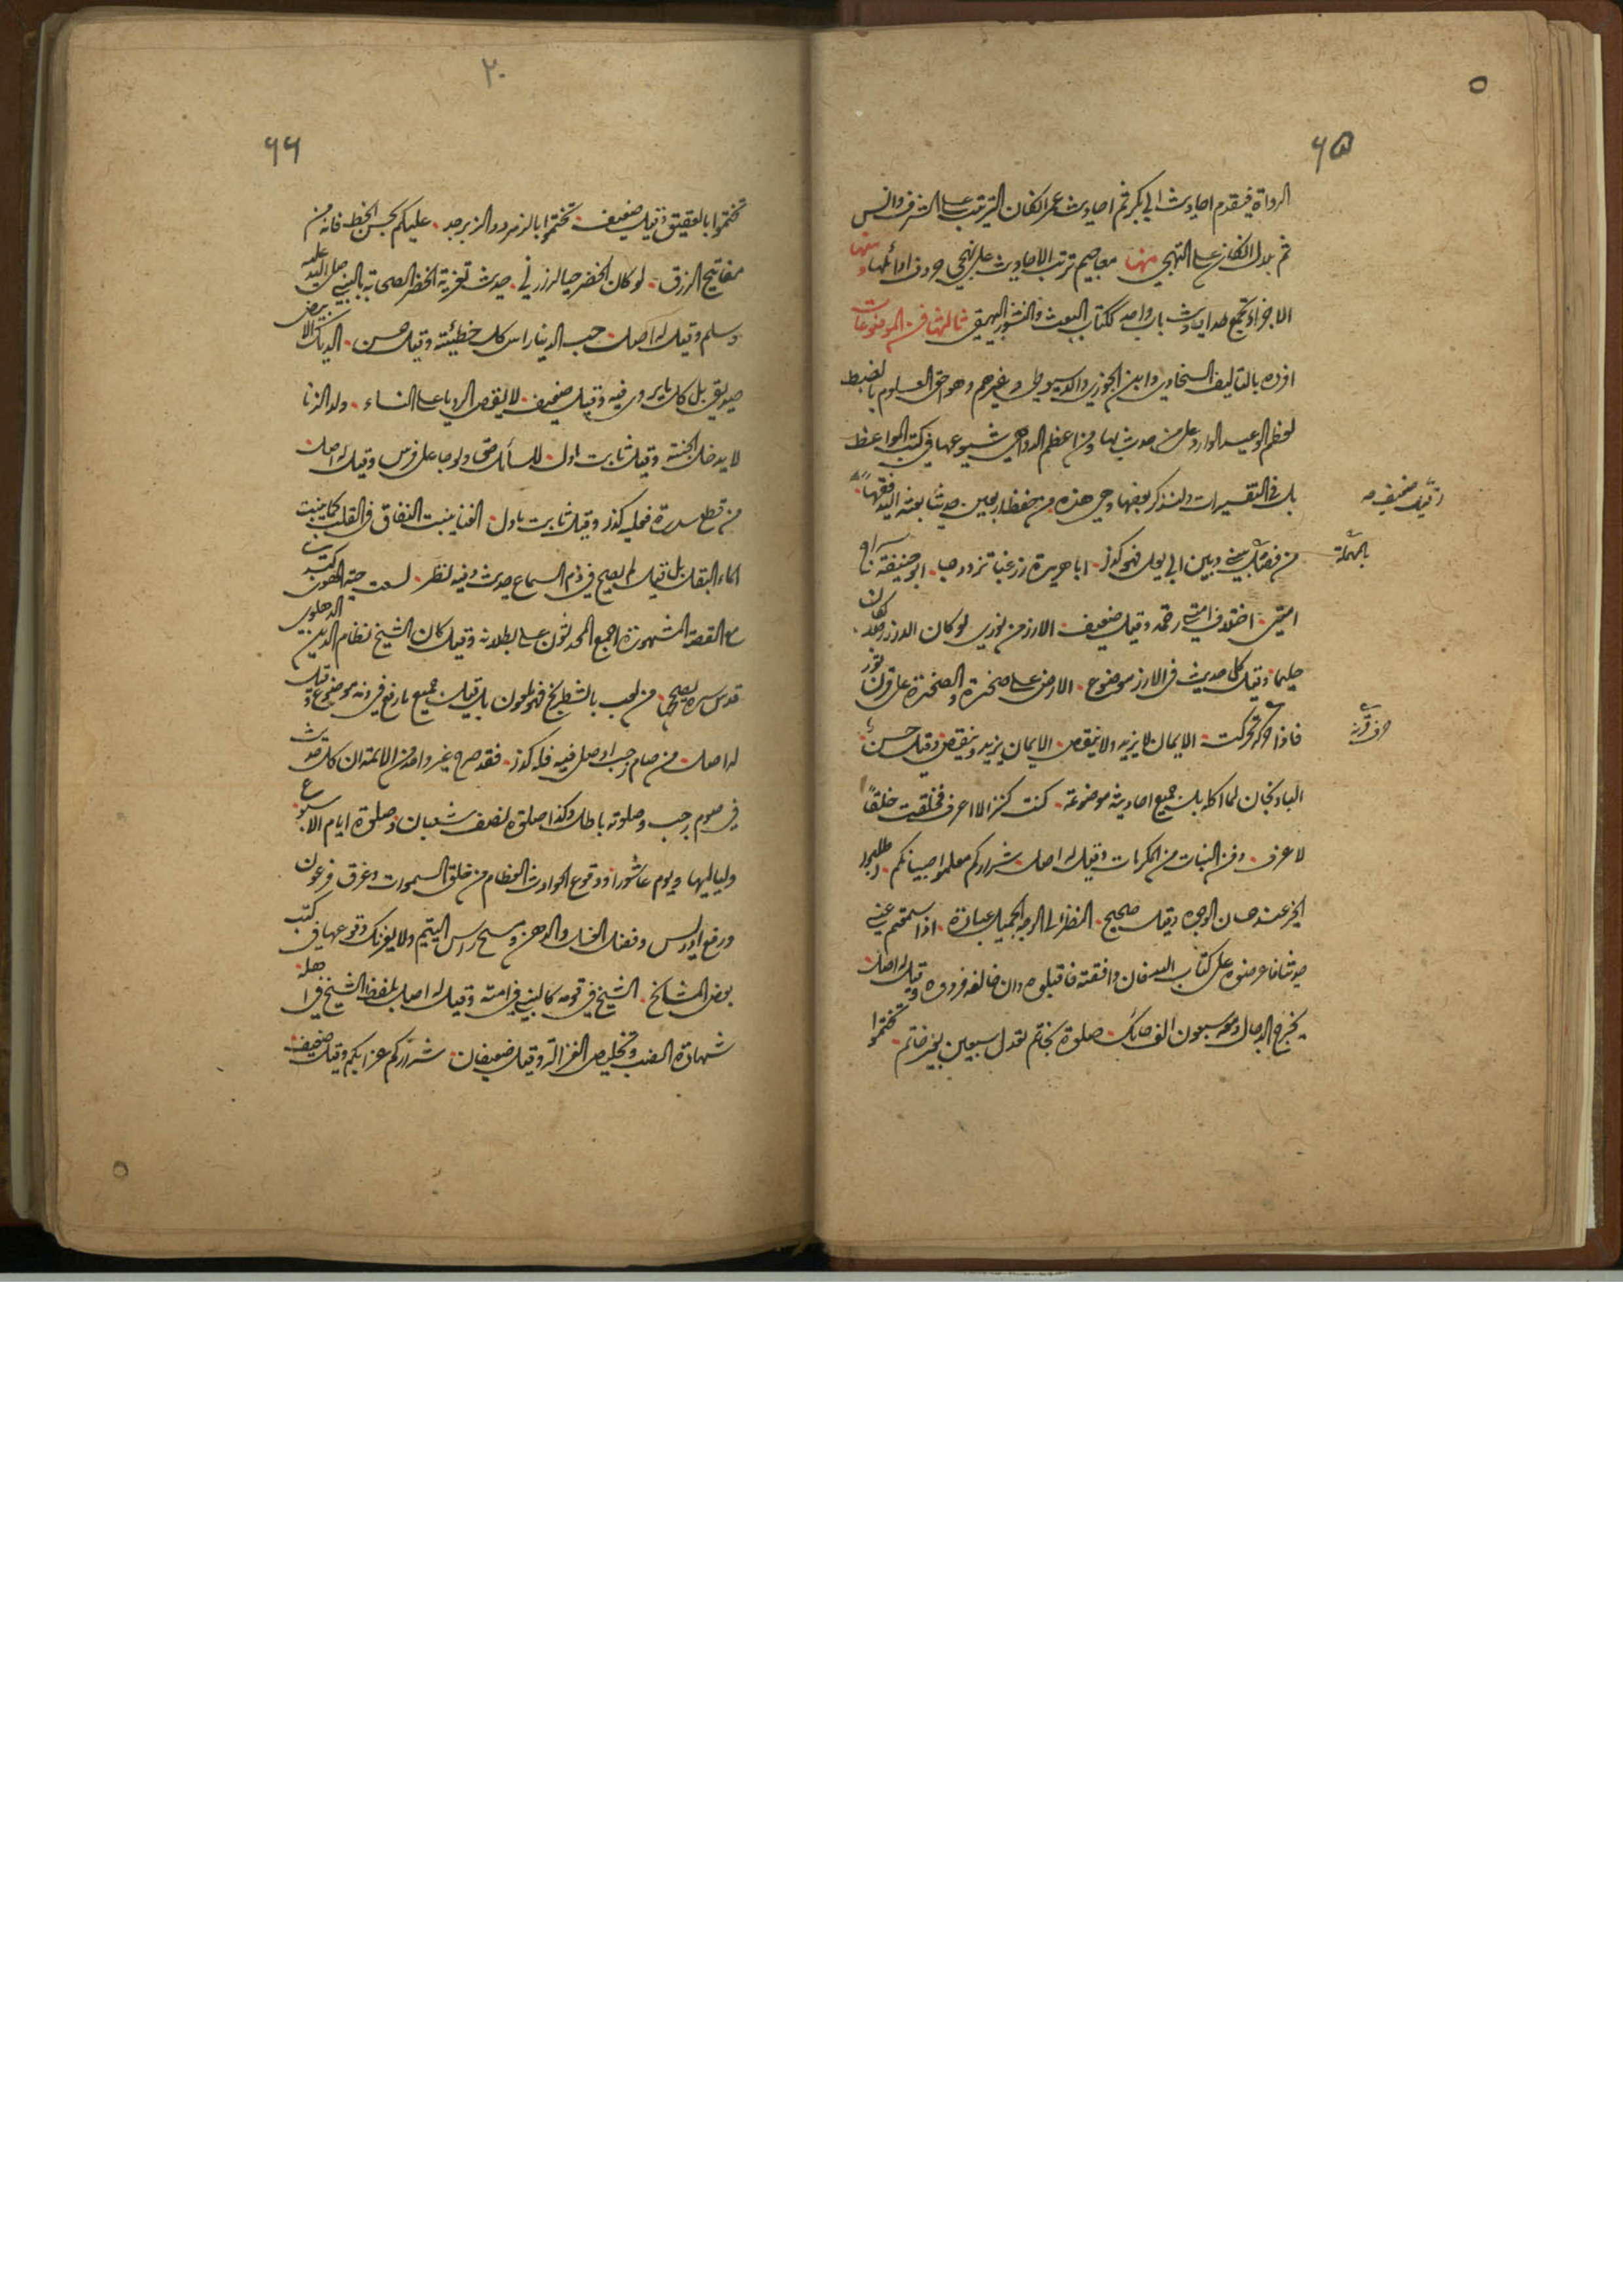 ٦٥
الرواة فيقدم احاديث ابي بكر ثم احاديث عمر الكفان الترتيب على الشرف وانس
ثم بدل الكفان على التهجي منها معاجيم ترتب الاحاديث على تهجي حروف اوائلها ومنها
الاجزاء تجمع احاديث باب واحد ككتاب البعث والنشور للبيهقي ثالثها فن الموضوعات
افرده بالتاليف السخاوي وابن الجوزي والسيوطي وغيرهم وهو احق العلوم بالضبط
لعظم الوعيد الوارد على من حدث بها ومن اعظم الدواهي شيوعها في كتب المواعظ
بل في التفسيرات ولنذكر بعضها وهي هذه من حفظ اربعين حديثا بعثه الله فقيها
وقيل ضعيف
من فضل بيني وبين ابي بولي فهو كذا اباهريرة زر غبا تزدد حبا ابو حنيفة سراج
بالمهملة
امتي اختلاف امتي رحمة وقيل ضعيف الارز من نوري لو كان الارز رجلا لكان
حليما وقيل كل حديث في الارز موضوع الارض على صخرة والصخرة على قرن ثور
فاذا حرك قرنه تحركت الايمان لا يزيد ولا ينقص الايمان يزيد وينقص وقيل حسن
الباذنجان لما اكل بل جميع احاديثه موضوعة كنت كنزا لا اعرف فخلقت خلقا
لاعرف دفن البنات من المكرمات وقيل له اصل شراركم معلموا صبيانكم اطلبوا
الخير عند حسان الوجوه وقيل صحيح النظر الى الوجه الجميل عبادة اذا سمعتم عني
حديثا فاعرضوه على كتاب الله فان وافقته فاقبلوه وان خالفه فردوه وقيل له اصل
يخرج الدجال ومعه سبعون الف حائك صلوة بخاتم تعدل سبعين بغير خاتم تختموا
٢٠
٦٦
تختموا بالعقيق وقيل ضعيف تختموا بالزمرد والزبرجد عليكم بحسن الخط فانه من
مفاتيح الرزق لو كان الخضر حيا لزارني حديث تعزية الخضر الصحابة بالنبي صلى الله عليه
وسلم وقيل له اصل حب الدنيا راس كل خطيئة وقيل حسن الديك الابيض
صديقي بل كل ما يروى فيه وقيل ضعيف لا يقص الرؤيا على النساء ولد الزنا
لا يدخل الجنة وقيل ثابت ماول للسائل حق ولو جاء على فرس وقيل له اصل
من قطع سدرة فعليه كذا وقيل ثابت ماول الغنا ينبت النفاق في القلب كما ينبت
الماء البقل بل قيل لم يصح في ذم السماع حديث وفيه نظر لسعت حية الهوى كبدي
مع القصة المشهورة اجمع المحدثون على بطلانه وقيل كان الشيخ نظام الدين الدهلوي
قدس سره يصححه من لعب بالشطرنج فهو ملعون بل قيل جميع ما رفع فيه موضوع وقيل
له اصل من صام رجب او صلى فيه فله كذا فقد صرح غير واحد من الائمة ان كل حديث
في صوم رجب وصلوته باطل وكذا صلوة نصف شعبان وصلوة ايام الاسبوع
ولياليها ويوم عاشورا ووقوع الحوادث العظام من خلق السموات وغرق فرعون
ورفع ادريس وفضل الغسل والدهن ومسح راس اليتيم ولا يغرنك وقوعها في كتب
بعض المشايخ الشيخ في قومه كالنبي في امته وقيل له اصل بلفظ الشيخ في اهله
شهادة الضب وتخليص الغزالة وقيل ضعيفان شراركم عزابكم وقيل ضعيف